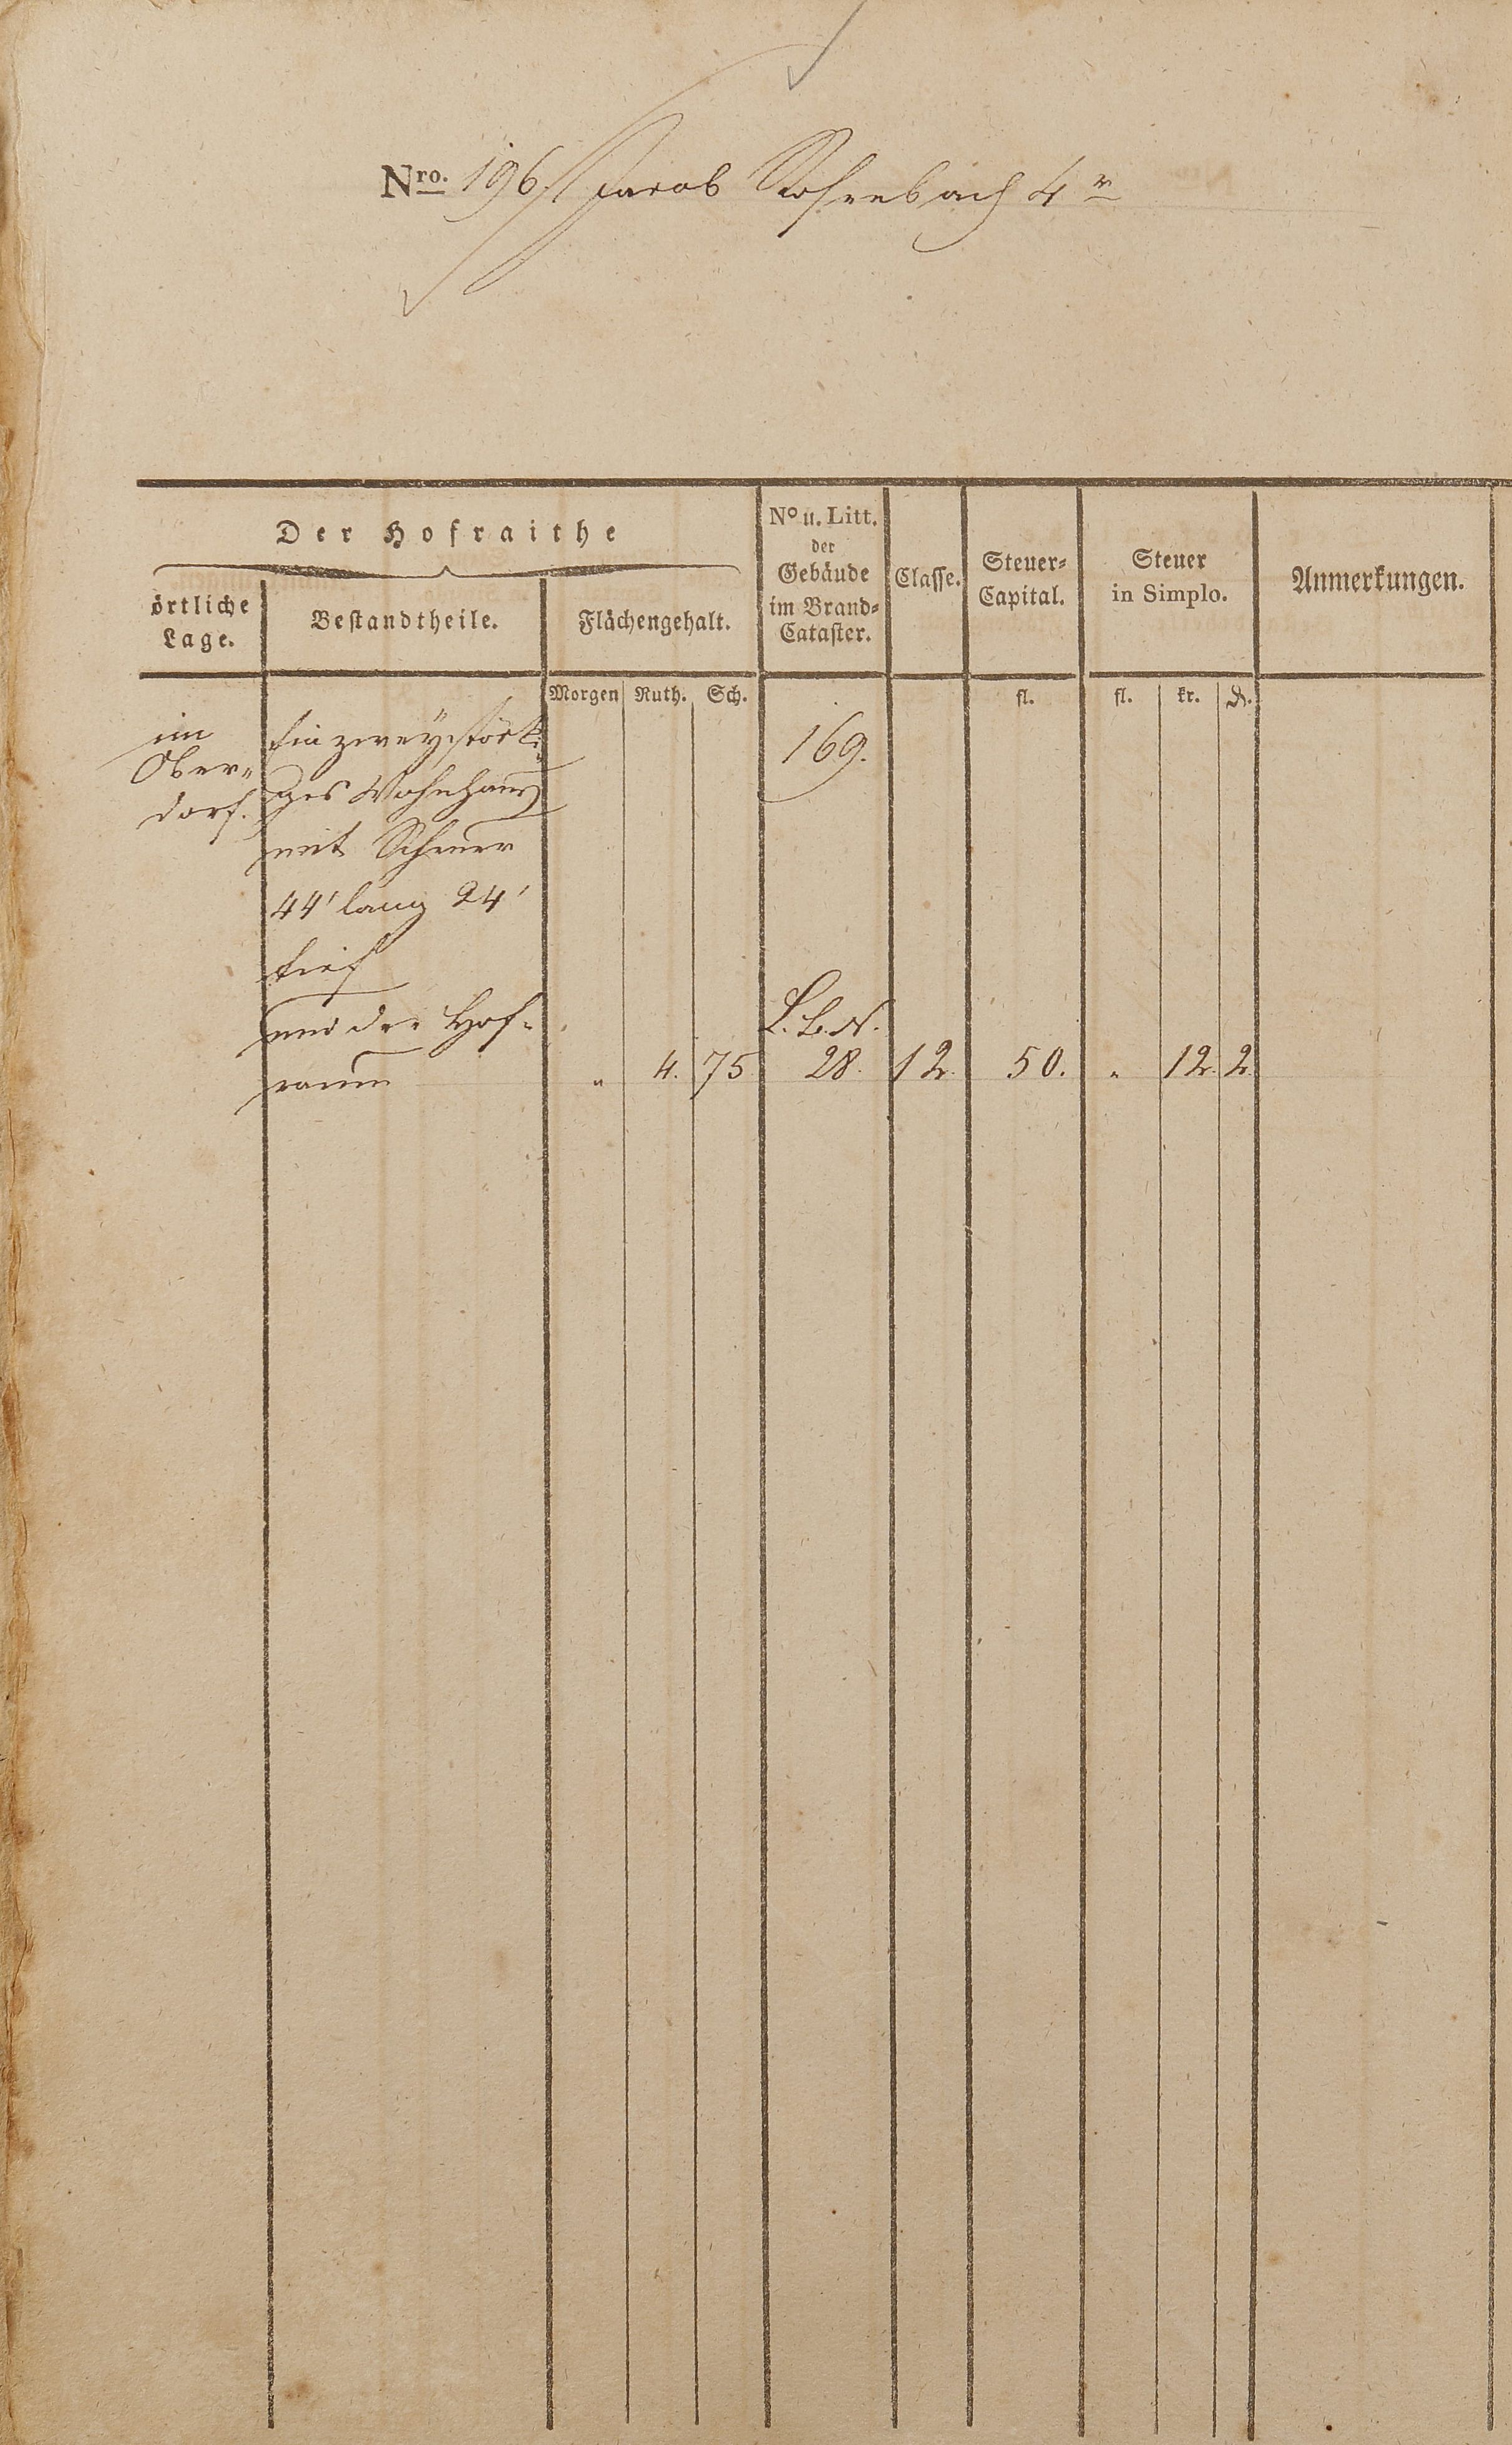 Nro. 196. Jacob Rosenbach 4r
Der Hofraithe
örtliche Lage.
Bestandtheile.
Flächengehalt.
No u. Litt. der Gebäude im Brand-Cataster.
Classe.
Steuer-Capital.
Steuer in Simplo.
Anmerkungen.
Morgen Ruth. Sch. fl. fl. kr. ₰.
im
Ober-
dorf.
Ein zweystöck-
ges Wohnhaus
mit Scheuer
44' lang 24'
tief
und der Hof-
raum
169.
L. B. N.
" 4. 75 28. 12. 50. " 12. 2.